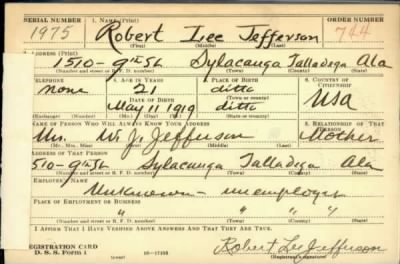 SERIAL NUMBER 1. NAME (Print) ORDER NUMBER
1975 Robert Lee Jefferson 744
(First) (Middle) (Last)
ADDRESS (Print)
1510-9th St Sylacauga Talladega Ala
(Number and street or R. F. D. number) (Town) (County) (State)
TELEPHONE 4. AGE IN YEARS 5. PLACE OF BIRTH 6. COUNTRY OF CITIZENSHIP
none 21 ditto
DATE OF BIRTH (Town or county)
May 11 1919 ditto USA
(Exchange) (Number) (Mo.) (Day) (Yr.) (State or country)
NAME OF PERSON WHO WILL ALWAYS KNOW YOUR ADDRESS 8. RELATIONSHIP OF THAT PERSON
W. J. Jefferson Mother
(Mr., Mrs., Miss) (First) (Middle) (Last)
ADDRESS OF THAT PERSON
510-9th St Sylacauga Talladega Ala
(Number and street or R. F. D. number) (Town) (County) (State)
EMPLOYER'S NAME
Unknown - unemployed
PLACE OF EMPLOYMENT OR BUSINESS
" " " "
(Number and street or R. F. D. number) (Town) (County) (State)
I AFFIRM THAT I HAVE VERIFIED ABOVE ANSWERS AND THAT THEY ARE TRUE.
REGISTRATION CARD Robert Lee Jefferson
D. S. S. Form 1 16-17105 (Registrant's signature)